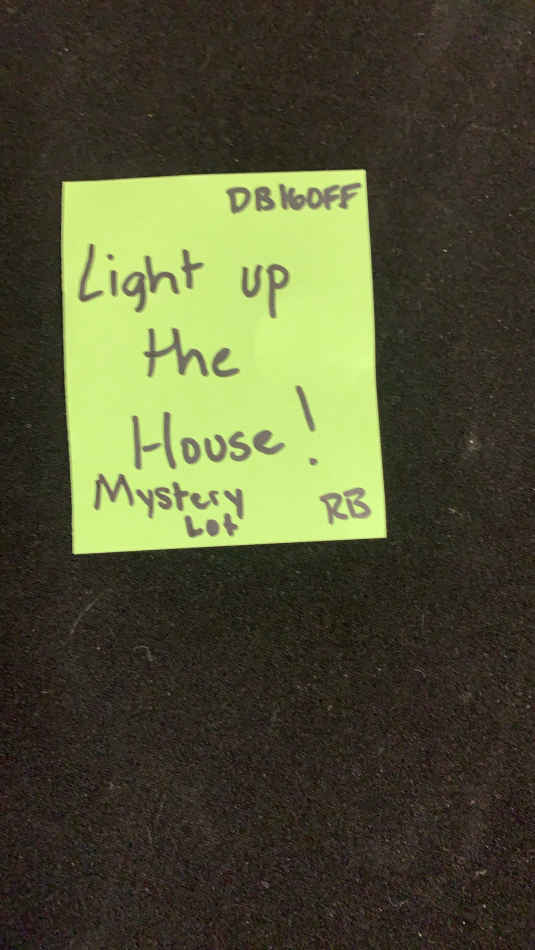 DB160FF
Light up
the
House!
Mystery
Lot
RB